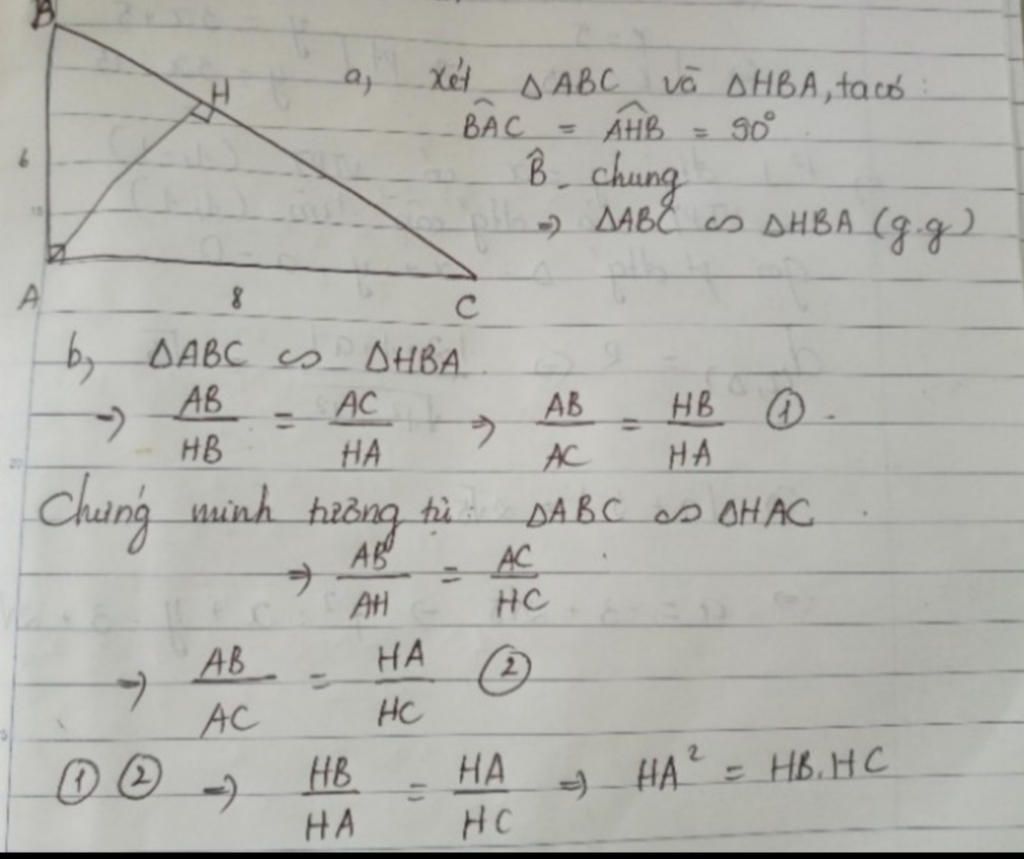 B
H
6
A
8
C
a, xét ΔABC và ΔHBA, ta có:
B̂AC = ÂHB = 90°
B̂ chung
⇒ ΔABC ∽ ΔHBA (g.g)
b, ΔABC ∽ ΔHBA
⇒ AB/HB = AC/HA ⇒ AB/AC = HB/HA ①
Chứng minh tương tự: ΔABC ∽ ΔHAC
⇒ AB/AH = AC/HC
⇒ AB/AC = HA/HC ②
① ② ⇒ HB/HA = HA/HC ⇒ HA² = HB.HC